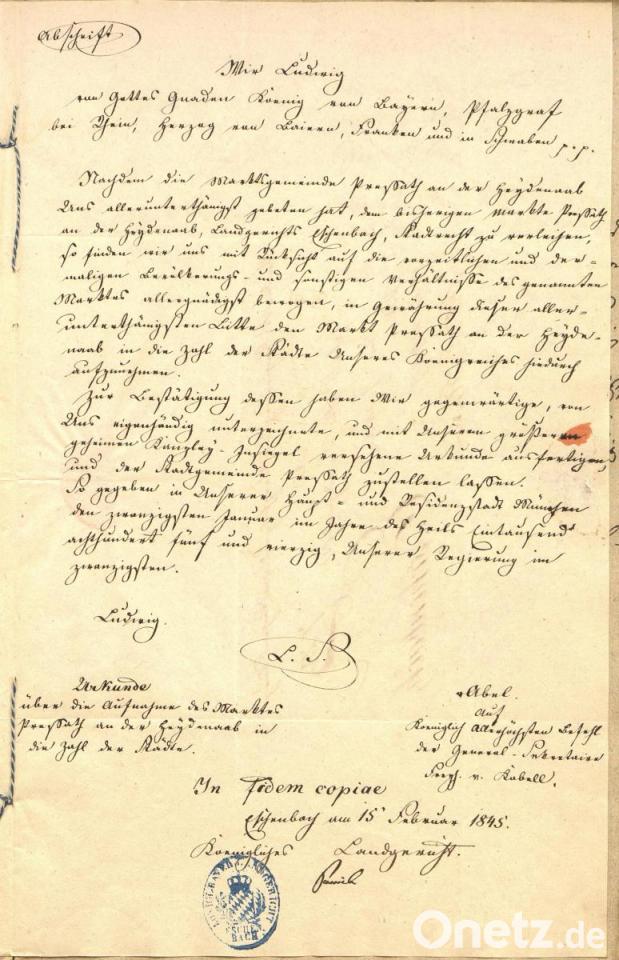 Abschrift
Wir Ludwig
von Gottes Gnaden Koenig von Bayern, Pfalzgraf
bei Rhein, Herzog von Baiern, Franken und in Schwaben p. p.
Nachdem die Marktsgemeinde Pressath an der Heydenaab
Uns allerunterthänigst gebeten hat, dem bisherigen Markte Pressath
an der Heydenaab, Landgerichts Eschenbach, Stadtrecht zu verleihen,
so finden wir uns mit Rücksicht auf die vorzeitlichen und der-
maligen Bevölkerungs- und sonstigen Verhältnisse des genannten
Marktes allergnädigst bewogen, in Gewährung dieser aller-
unterthänigsten Bitte den Markt Pressath an der Heyde-
naab in die Zahl der Städte Unseres Koenigreiches hiedurch
aufzunehmen.
Zur Bestätigung dessen haben Wir gegenwärtige, von
Uns eigenhändig unterzeichnete, und mit Unserem größeren
geheimen Kanzley-Insiegel versehene Urkunde ausfertigen,
und der Stadtgemeinde Pressath zustellen lassen.
So gegeben in Unserer Haupt- und Residenzstadt München
den zwanzigsten Januar im Jahre des Heils Eintausend
achthundert fünf und vierzig, Unserer Regierung im
zwanzigsten.
Ludwig.
L. S.
Urkunde
über die Aufnahme des Marktes
Pressath an der Heydenaab in
die Zahl der Städte.
v Abel.
Auf
Koeniglich Allerhöchsten Befehl
der General-Sekretaire
v. Kobell.
In fidem copiae
Eschenbach am 15 Februar 1845.
Koenigliches Landgericht.
KÖNIGL. BAYER. LANDGERICHT
ESCHEN
BACH
Onetz.de